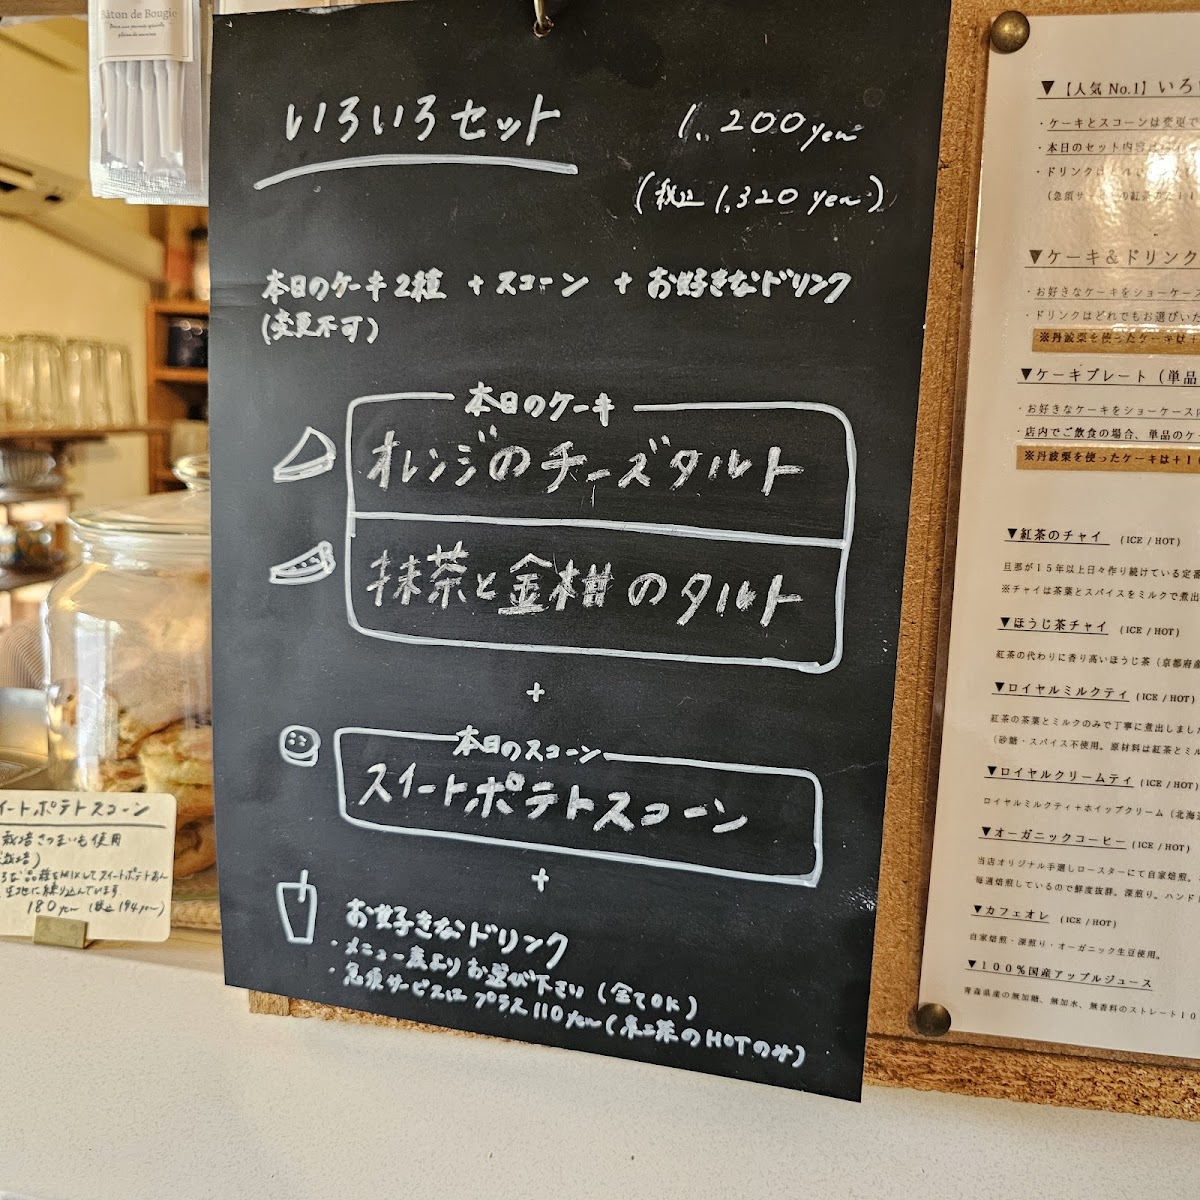 Bâton de Bougie
いろいろセット
1,200yen
(税込 1,320 yen)
本日のケーキ2種 + スコーン + お好きなドリンク
(変更不可)
本日のケーキ
オレンジのチーズタルト
抹茶と金柑のタルト
+
本日のスコーン
スイートポテトスコーン
+
お好きなドリンク
・メニュー表よりお選び下さい (全てOK)
・急須サービスはプラス110yen(紅茶のHOTのみ)
イートポテトスコーン
栽培さつまいも使用
品種をMIXしてスイートポテトあん
生地に練り込んでいます。
180yen (税込194yen)
▼【人気 No.1】いろ
・ケーキとスコーンは変更で
・本日のセット内容は
・ドリンクはどれ
(急須サ
▼ケーキ＆ドリンク
・お好きなケーキをショーケース
・ドリンクはどれでもお選びいた
※丹波栗を使ったケーキは＋
▼ケーキプレート（単品
・お好きなケーキをショーケース内
・店内でご飲食の場合、単品のケ
※丹波栗を使ったケーキは＋１
▼紅茶のチャイ (ICE / HOT)
旦那が１５年以上日々作り続けている定番
※チャイは茶葉とスパイスをミルクで煮出
▼ほうじ茶チャイ (ICE / HOT)
紅茶の代わりに香り高いほうじ茶（京都府産
▼ロイヤルミルクティ (ICE / HOT)
紅茶の茶葉とミルクのみで丁寧に煮出しました
（砂糖・スパイス不使用。原材料は紅茶とミル
▼ロイヤルクリームティ (ICE / HOT)
ロイヤルミルクティ＋ホイップクリーム（北海道
▼オーガニックコーヒー (ICE / HOT)
当店オリジナル手選しロースターにて自家焙煎。
毎週焙煎しているので鮮度抜群。深煎り。ハンド
▼カフェオレ (ICE / HOT)
自家焙煎・深煎り・オーガニック生豆使用。
▼１００％国産アップルジュース
青森県産の無加糖、無加水、無香料のストレート１０